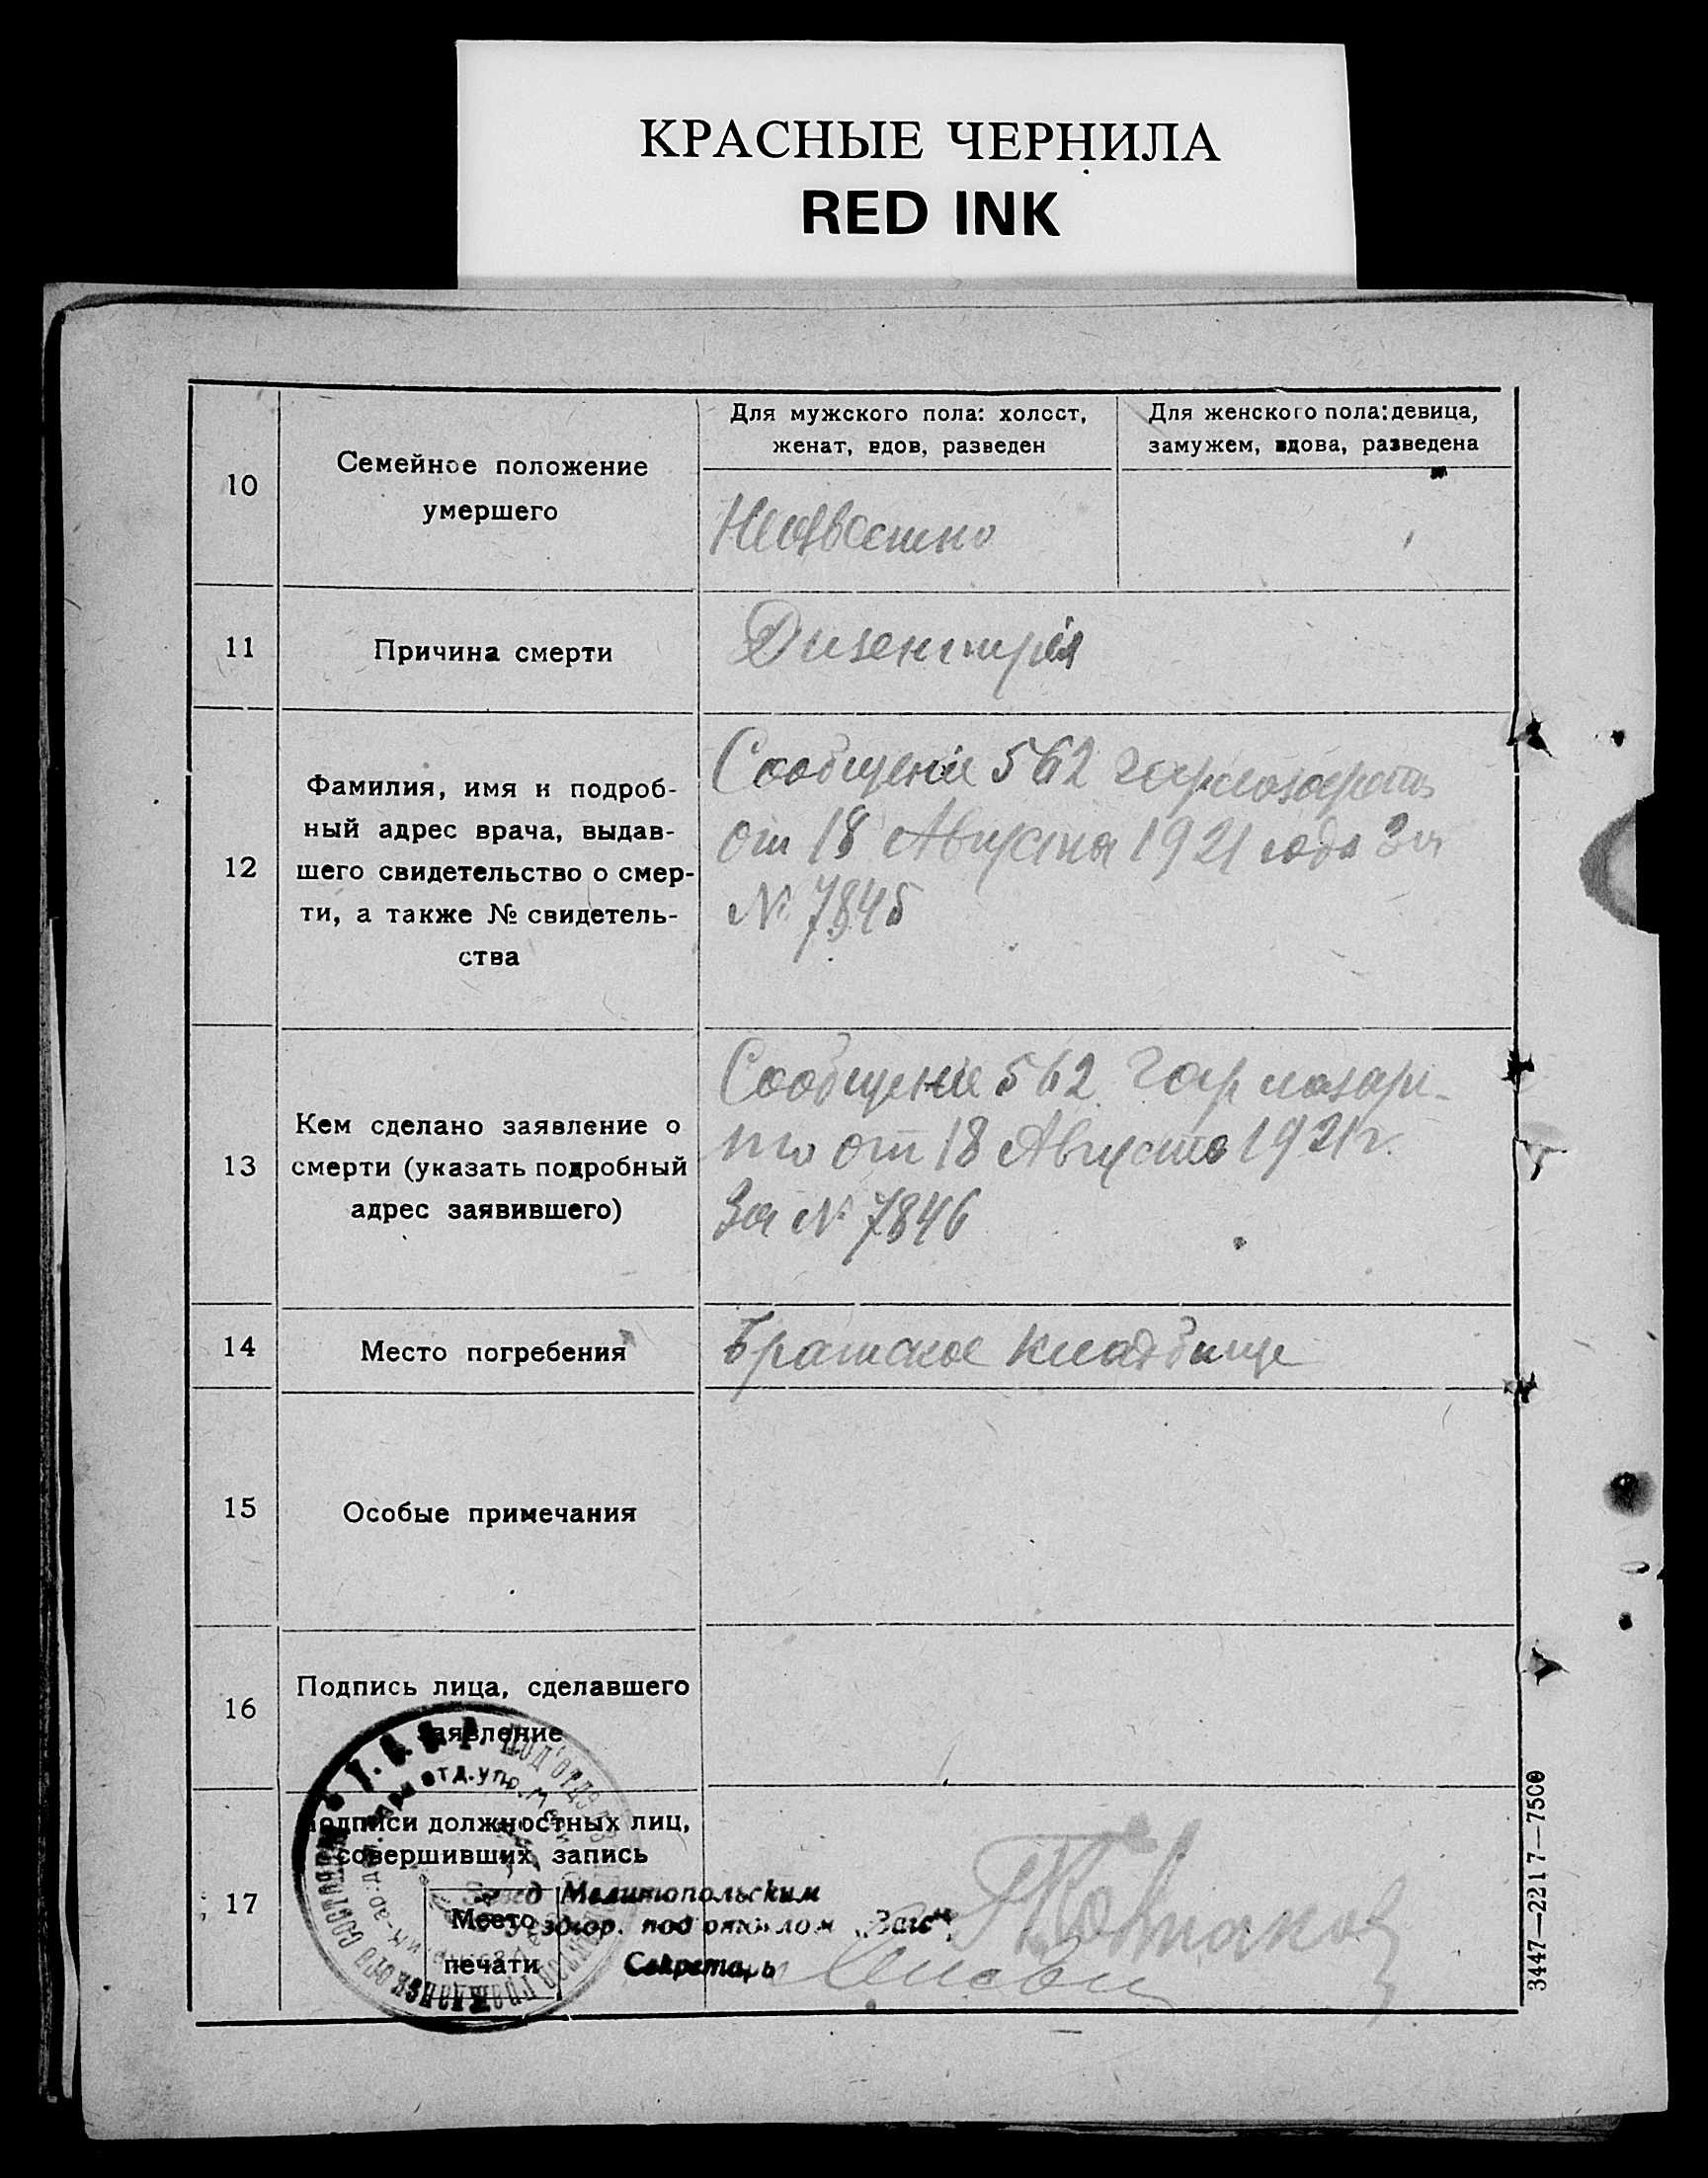 КРАСНЫЕ ЧЕРНИЛА
RED INK
10
Семейное положение
умершего
Для мужского пола: холост,
женат, вдов, разведен
Для женского пола: девица,
замужем, вдова, разведена
Неизвестно
11
Причина смерти
Дизентерія
12
Фамилия, имя и подроб-
ный адрес врача, выдав-
шего свидетельство о смер-
ти, а также № свидетель-
ства
Сообщеніе 562 гарлазарета
от 18 Августа 1921 года За
№ 7845
13
Кем сделано заявление о
смерти (указать подробный
адрес заявившего)
Сообщеніе 562 Гар лазаре-
та от 18 Августа 1921 г.
За № 7846
14
Место погребения
Братское кладбище
15
Особые примечания
16
Подпись лица, сделавшего
заявление
17
Подписи должностных лиц,
совершивших запись
Место
печати
Завед Мелитопольским
Уездгор. подотделом „Загс“
Секретарь
3447—2217—7500